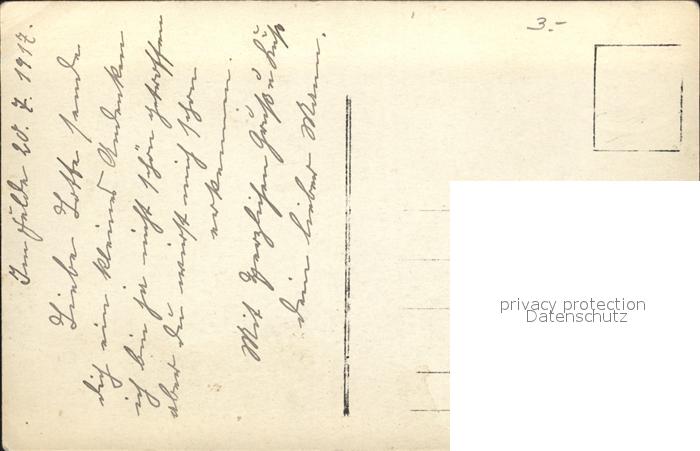 Im Felde 20. 7. 1917.
Liebe Lotte sende
dich ein kleines Andenken
ich bin ja nicht schön getroffen
aber du wirst mich schon
erkennen.
Mit herzlichen Gruß u Kuß
dein lieber Mann.
3.-
privacy protection
Datenschutz